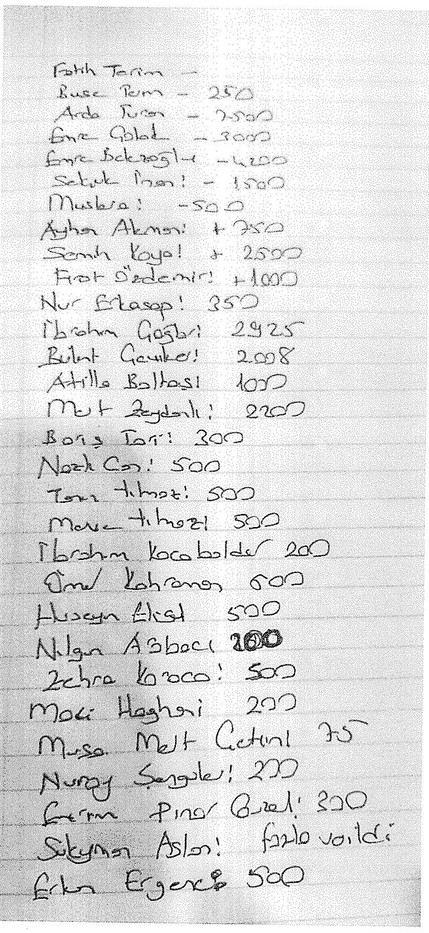 Fatih Terim -
Buse Terim - 250
Arda Turan - 7500
Emre Çolak - 3000
Emre Belezoğlu - 4200
Selçuk İnan: - 1500
Muslera: - 500
Ayhan Akman: + 750
Semih Kaya: + 2500
Fırat Özdemir: +1000
Nur Erkasap: 350
İbrahim Çağlar: 2925
Bülent 2008
Atilla Baltaş: 1000
Mert Zeydanlı: 2200
Barış 300
Nazlı Can: 500
Yılmaz: 500
Merve Yılmaz: 500
İbrahim Kocabalder 200
Ömer Kahraman 600
Hüseyin 500
Nilgün
Zehra Karaca: 500
200
Musa Mert Çetin: 75
Nuray Şengüler: 200
Pınar Güzel: 300
Süleyman Aslan: fazla
Erkan Ergenç: 500